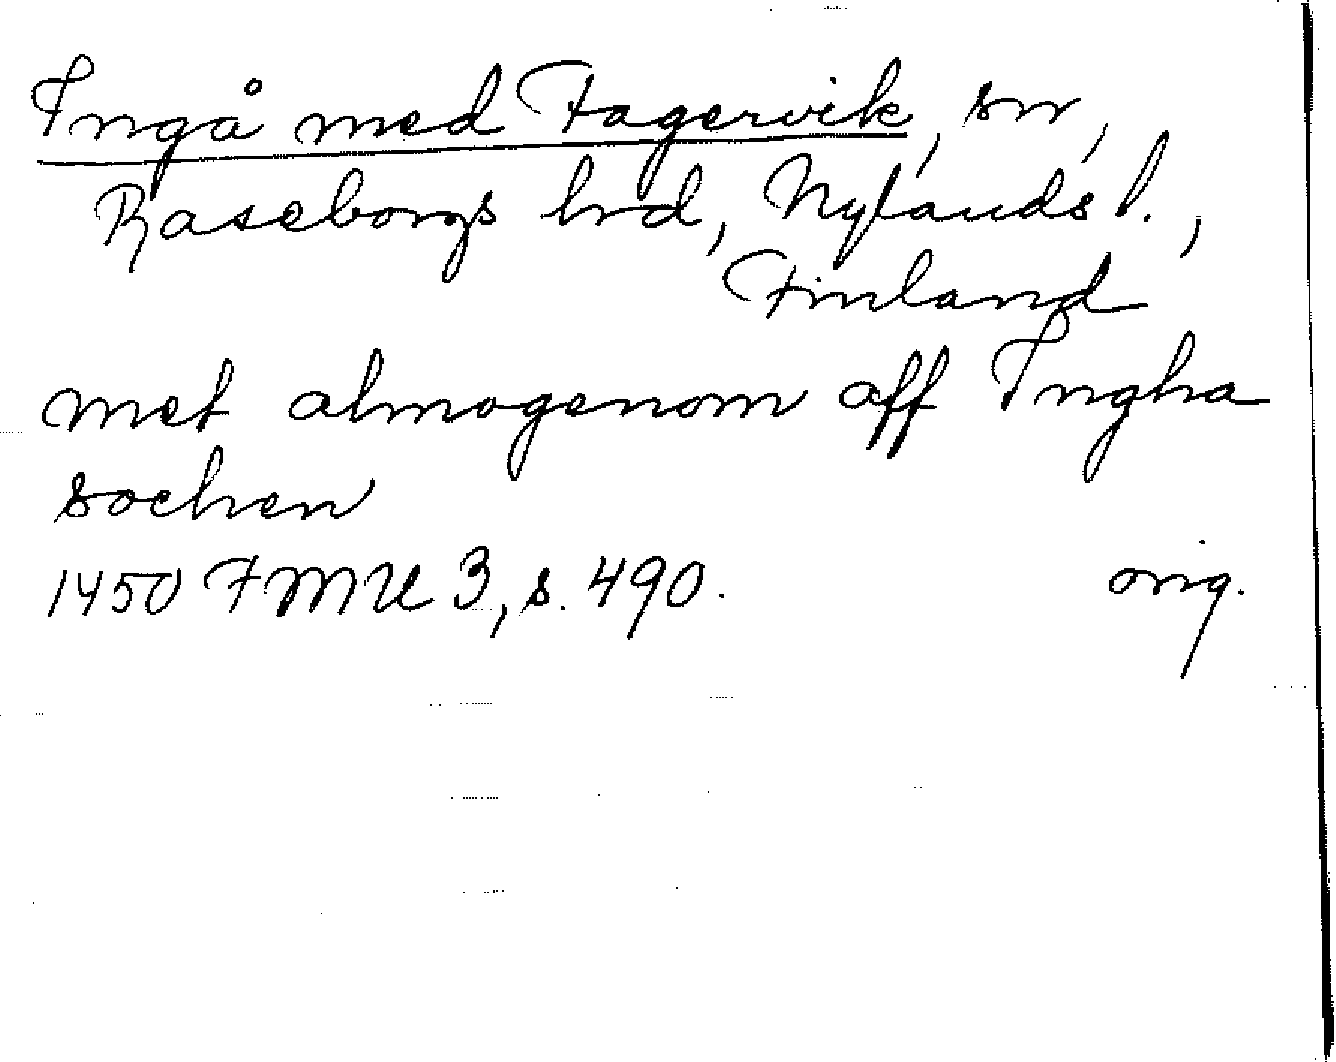 Ingå med Fagervik, sn,
Raseborgs hrd, Nylands l.,
Finland
met almogenom aff Ingha
sochen
1450 FMU 3, s. 490. orig.